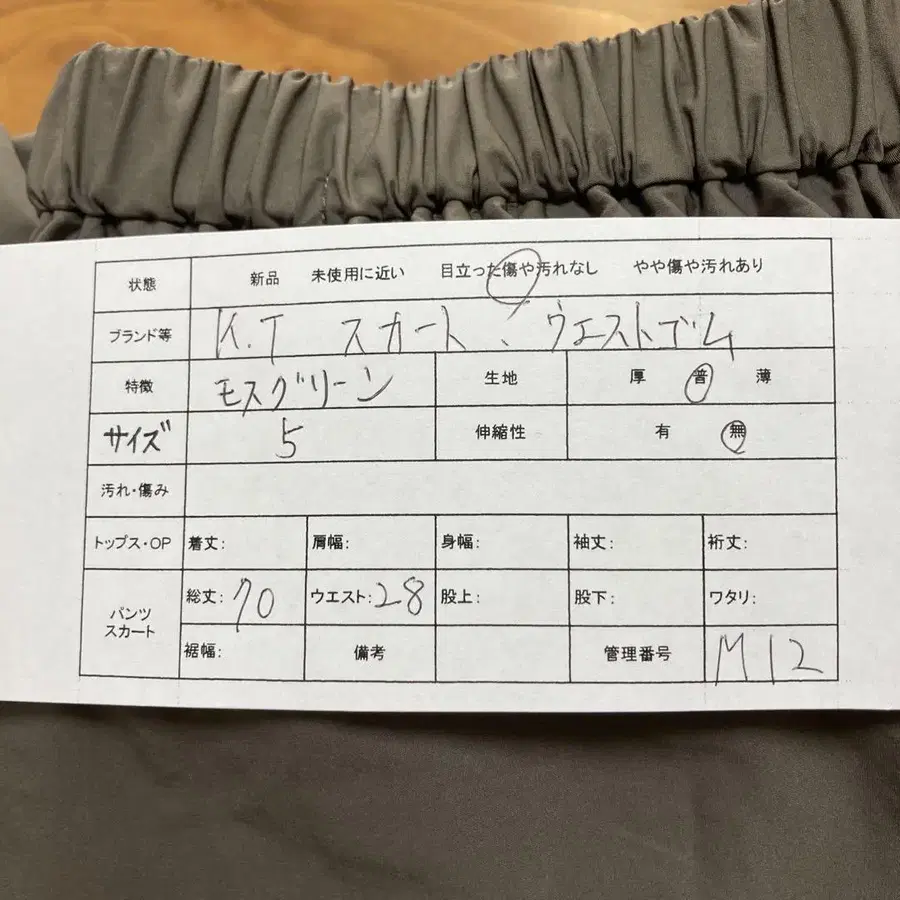 状態 新品 未使用に近い 目立った傷や汚れなし やや傷や汚れあり
ブランド等 K.T スカート、ウエストゴム
特徴 モスグリーン 生地 厚 普 薄
サイズ 5 伸縮性 有 無
汚れ・傷み
トップス・OP 着丈: 肩幅: 身幅: 袖丈: 裄丈:
パンツ スカート 総丈: 70 ウエスト: 28 股上: 股下: ワタリ:
裾幅: 備考 管理番号 M12